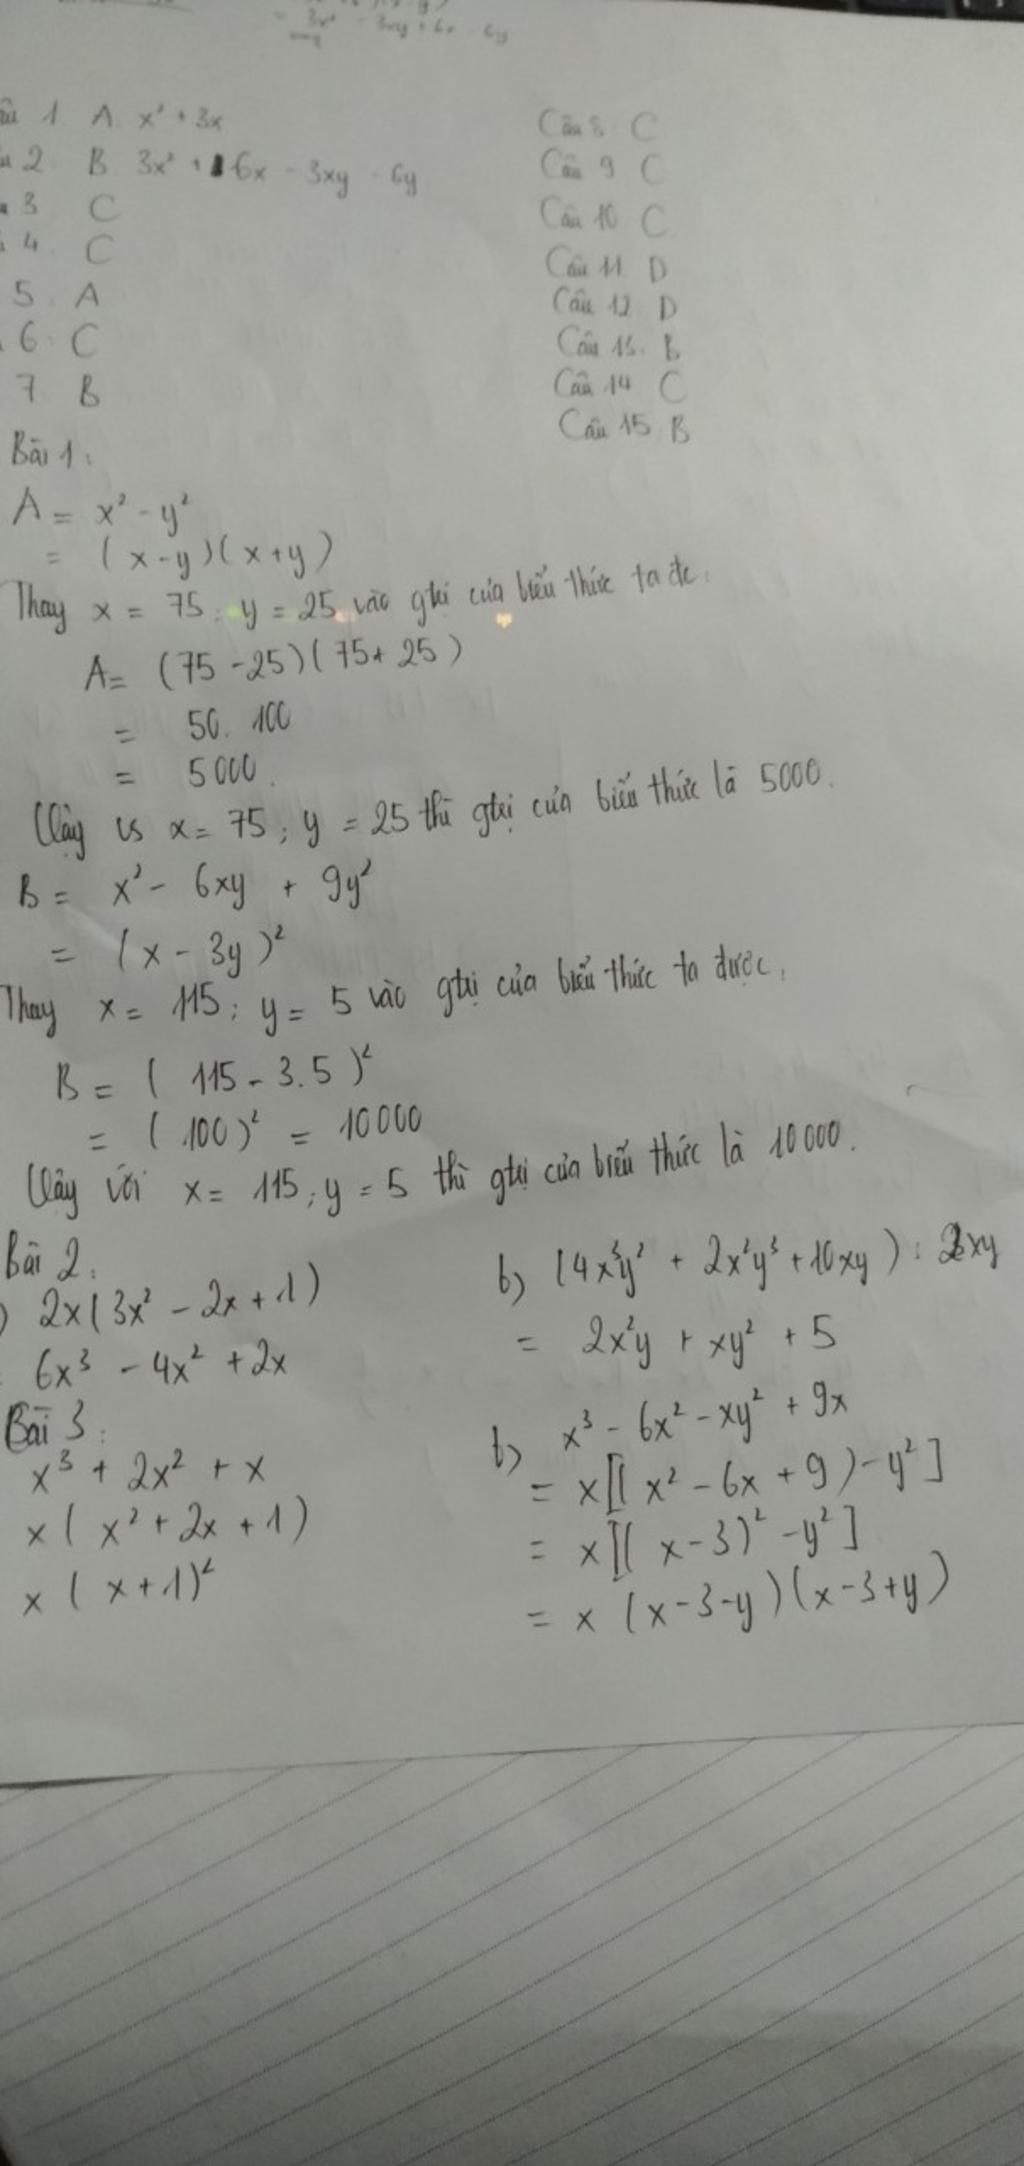 3x² - 3xy + 6x - 6y
1 A. x² + 3x
2. B 3x² + 6x - 3xy - 6y
3 C
4. C
5. A
6. C
7 B
Câu 8. C
Câu 9 C
Câu 10 C
Câu 11. D
Câu 12. D
Câu 13. B
Câu 14 C
Câu 15. B
Bài 1:
A = x² - y²
= (x-y)(x+y)
Thay x = 75; y = 25 vào gtrị của biểu thức ta đc:
A = (75-25)(75+25)
= 50. 100
= 5000.
Vậy vs x = 75; y = 25 thì gtrị của biểu thức là 5000.
B = x² - 6xy + 9y²
= (x - 3y)²
Thay x = 115; y = 5 vào gtrị của biểu thức ta được:
B = (115 - 3.5)²
= (100)² = 10000
Vậy với x = 115; y = 5 thì gtrị của biểu thức là 10000.
Bài 2:
) 2x(3x² - 2x + 1)
6x³ - 4x² + 2x
b) (4x³y² + 2x²y³ + 10xy) : 2xy
= 2x²y + xy² + 5
Bài 3:
x³ + 2x² + x
x(x² + 2x + 1)
x(x+1)²
b) x³ - 6x² - xy² + 9x
= x[(x² - 6x + 9) - y²]
= x[(x-3)² - y²]
= x (x-3-y)(x-3+y)